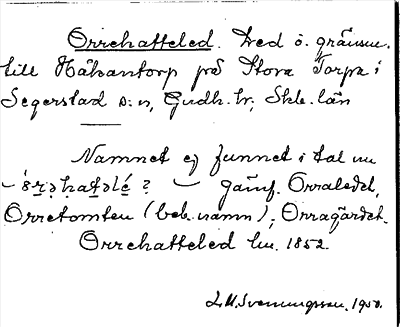 Orrehatteled. Led ö. gränsen.
till Hålsantorp på Stora Torpa i
Segerstad s:n, Gudh. hr; Skb. län
Namnet ej funnet i tal nu
Jämf. Orraledet,
Orretomten (beb.namn), Orragärdet.
Orrehatteled lm. 1852.
L.M. Svenungsson. 1950.